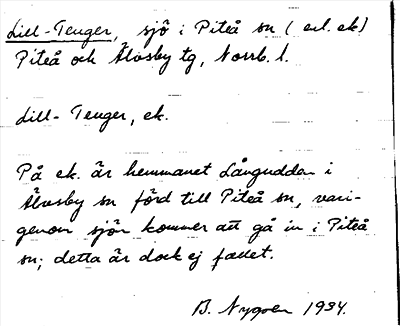 Lill-Teuger, sjö i Piteå sn (enl. ek)
Piteå och Älvsby tg, Norrb. l.
Lill-Teuger, ek.
På ek. är hemmanet Långudden i
Älvsby sn förd till Piteå sn, vari-
genom sjön kommer att gå in i Piteå
sn; detta är dock ej fallet.
B. Nygren 1934.